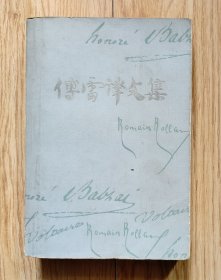 honoré de Balzac
傅雷译文集
Romain Rolland
honoré de Balzac
Voltaire
Voltaire
Romain Rolland
hon